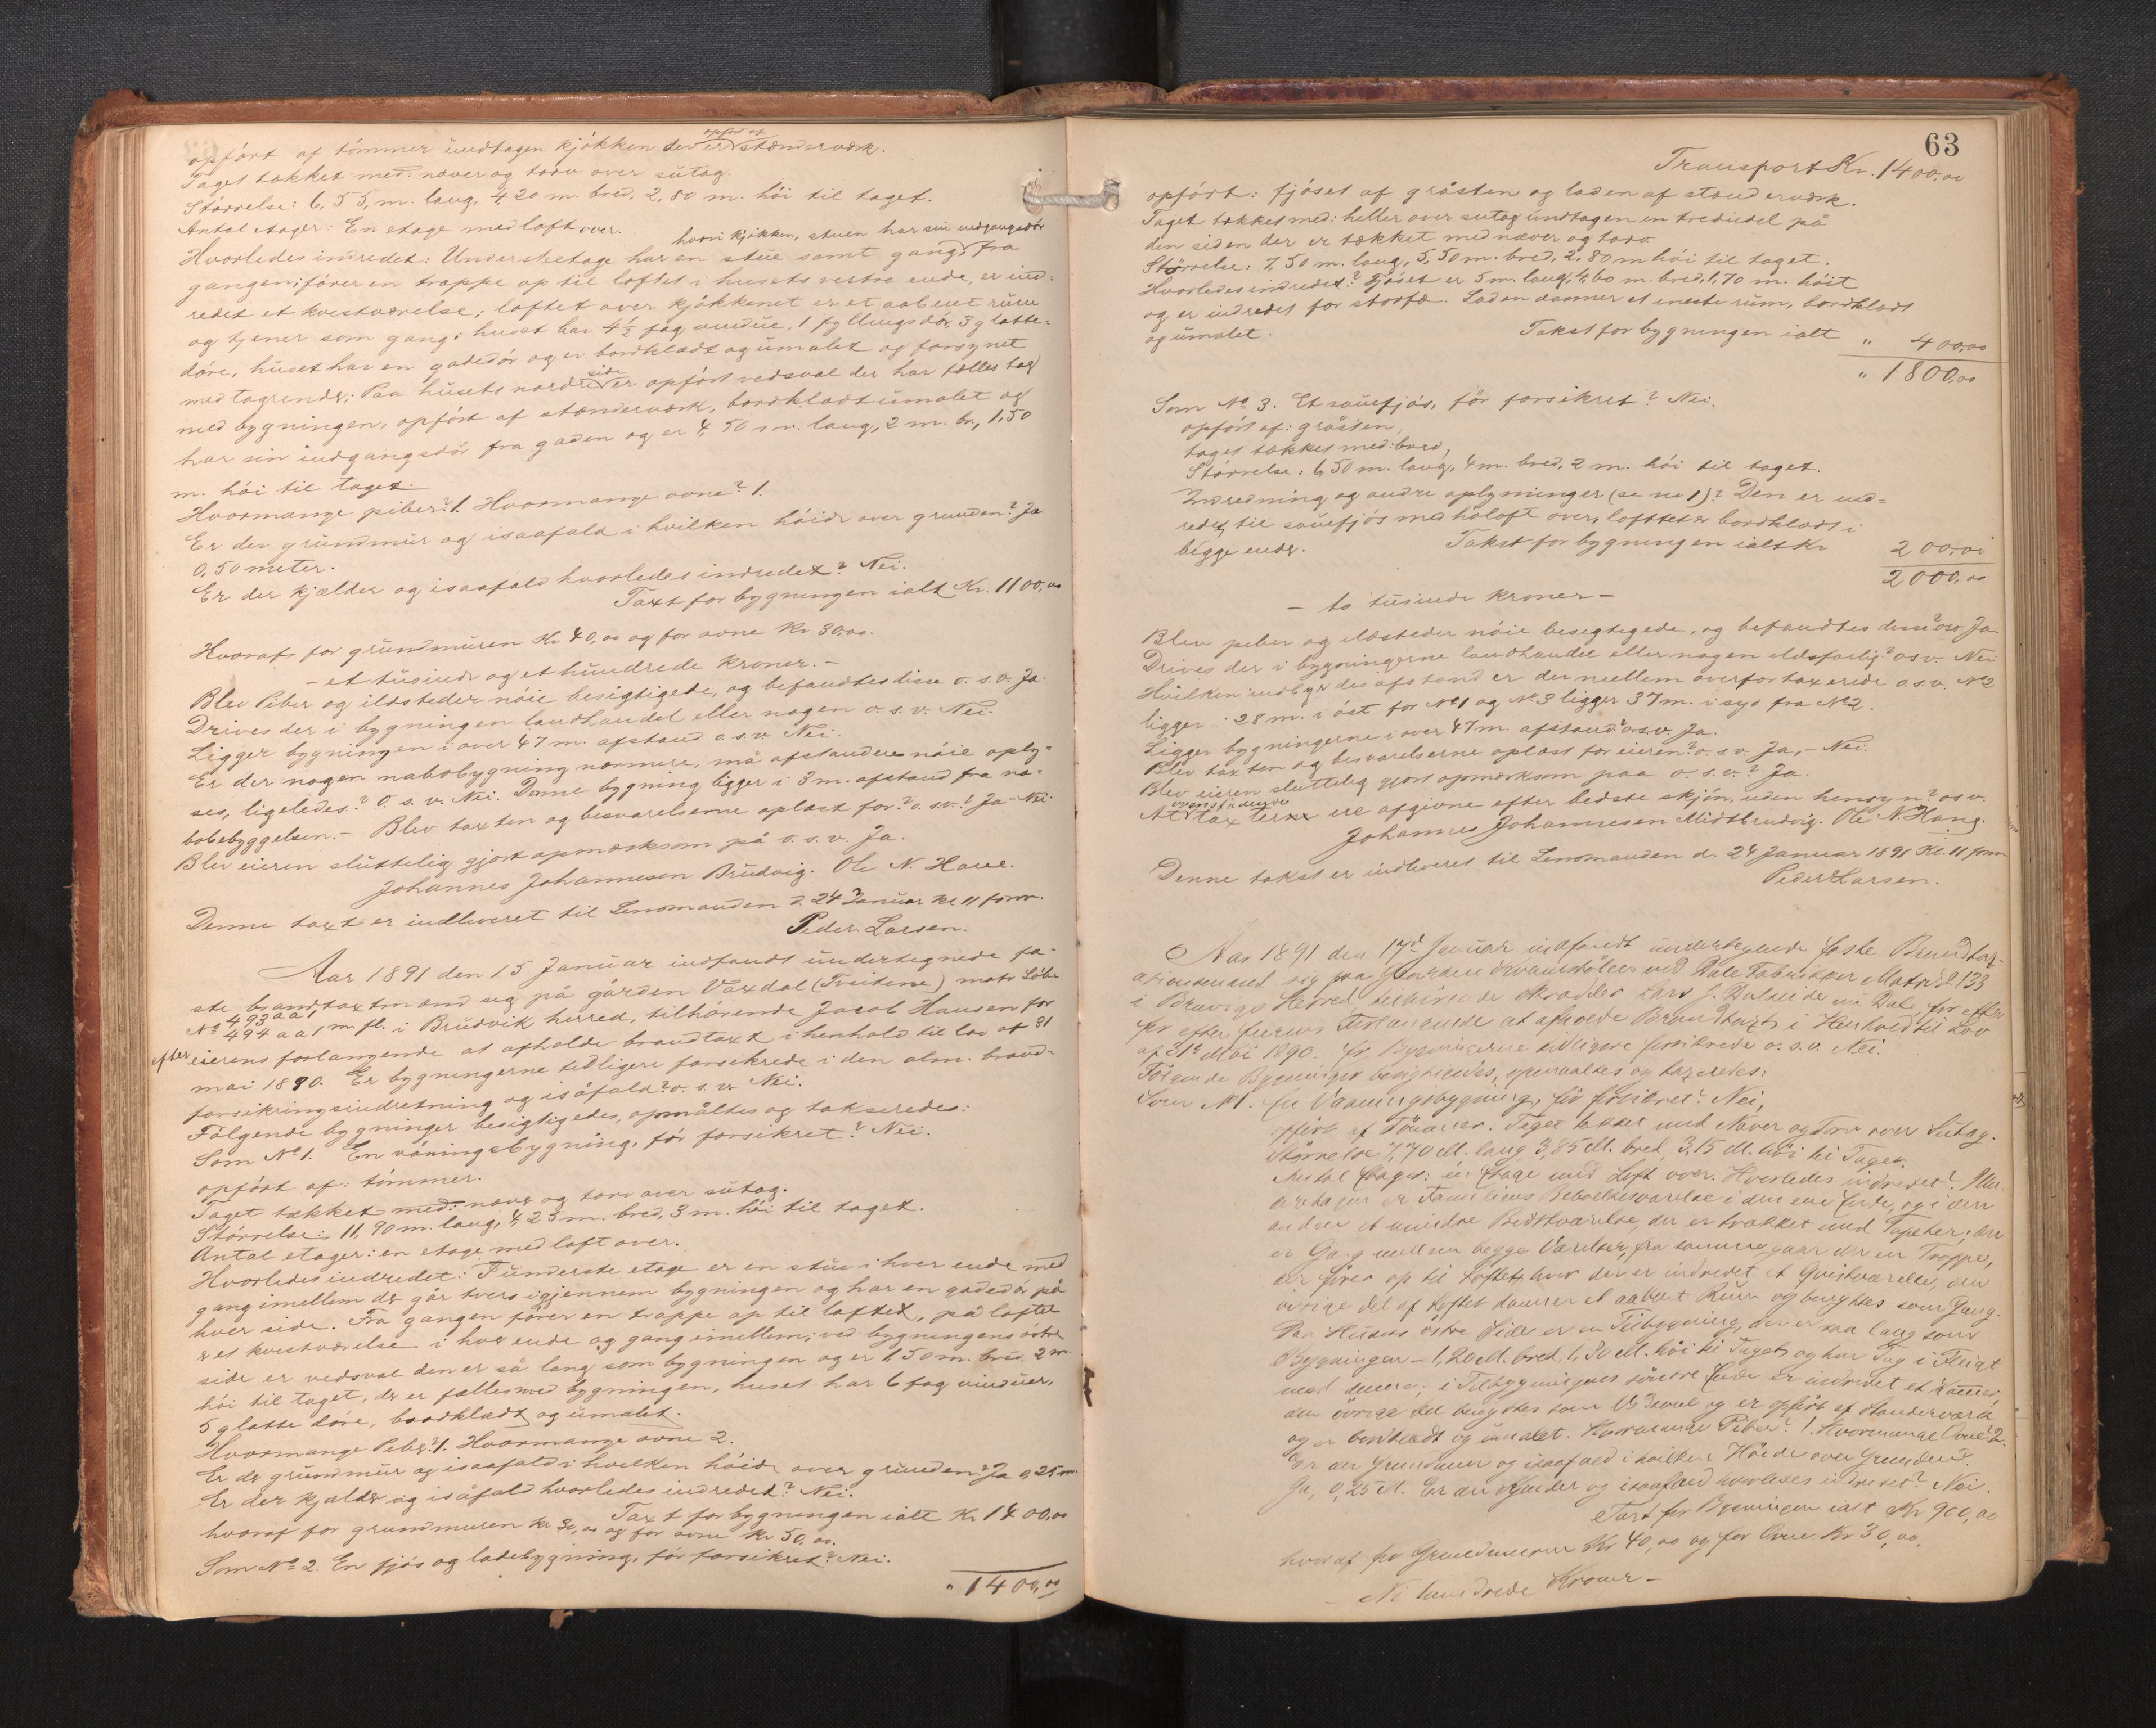 opført af tömmer undtagen kjökken der er opført af stænderværk.
Taget tækket med: næver og torv over sutag.
Störrelse: 6,55, m. lang, 4,20 m. bred, 2,80 m. höi til taget.
Antal etager: En etage med loft over.
Hvorledes indredet: Understeetage har en stue samt gang, hvori kjökken, stuen har sin udgangsdör fra
gangen; förer en trappe op til loftet i husets vestre ende, er ind-
redet et kvestværelse; loftet over kjökkenet er et aabent rum
og tjener som gang; huset har 4½ fag vindue, 1 fyllingsdör, 3 glatte-
döre, huset har en gadedör og er bordklædt og umalet og forsynet
med tagrende; Paa husets nordre side er opført vedsval der har fælles tag
med bygningen, opført af stænderværk, bordklædt umalet og
har sin indgangsdör fra gaden og er 4,50 m. lang, 2 m. br, 1,50
m. höi til taget.
Hvormange piber? 1. Hvormange ovne? 1.
Er der grundmur og isaafald i hvilken höide over grunden? Ja
0,50 meter.
Er der kjælder og isaafald hvorledes indredet? Nei.
Taxt for bygningen ialt Kr. 1100,00
Hvoraf for grundmuren Kr 40,00 og for ovne Kr 30,00.
- et tusinde og et hundrede kroner. -
Blev Piber og ildsteder nöie besigtigede, og befandtes disse o. s. v. Ja.
Drives der i bygningen landhandel eller nogen o. s. v. Nei.
Ligger bygningen i over 47 m. afstand o s. v. Nei.
Er der nogen nabobygning nærmere, må afstanden nöie oply-
ses, ligeledes? O. s. v. Nei. Denne bygning ligger i 3 m. afstand fra na-
bobebyggelsen. - Blev taxten og besvarelserne oplæst for? o. s. v.? Ja - Nei
Blev eieren sluttelig gjort opmærksom på o. s. v. Ja.
Johannes Johannesen Brudvig. Ole N. Haue.
Denne taxt er indleveret til Lensmanden d. 24 Januar kl 11 form.
Peder. Larsen.
Aar 1891 den 15 Januar indfandt undertegnede fa-
ste brandtaxtmænd sig på gården Vaxdal (Treitene) matr Löbe
No 493 aa 1, 494 aa 1 m fl. i Brudvik herred, tilhörende Jacob Hansen for
efter eierens forlangende at afholde brandtaxt i henhold til lov af 31
mai 1890. Er bygningerne tidligere forsikrede i den alm. brand-
forsikringsindretning og isåfald? o. s. v. Nei.
Fölgende bygninger besigtigedes, opmåltes og takseredes:
Som No 1. En våningsbygning, för forsikret? Nei.
opført af: tömmer.
Taget tækket med: næver og torv over sutag.
Störrelse: 11,90 m. lang, 4,23 m. bred, 3 m. höi til taget.
Antal etager: en etage med loft over.
Hvorledes indredet: I underste etage er en stue i hver ende med
gang imellem der går tvers igjennem bygningen og har en gadedör på
hver side. Fra gangen förer en trappe op til loftet, på loftet
er et kvistværelse i hver ende og gang imellem; ved bygningens östre
side er vedsval den er så lang som bygningen og er 1,50 m. bred, 2 m.
höi til taget, der er fælles med bygningen, huset har 6 fag vinduer,
5 glatte döre, bordklædt og umalet.
Hvormange Piber? 1. Hvormange ovne 2.
Er der grundmur og isaafald i hvilken höide over grunden? Ja 0,25 m.
Er der kjælder og isåfald hvorledes indredet? Nei.
Taxt for bygningen ialt Kr 1400,00
hvoraf for grundmuren kr 30,00 og for ovne Kr 50,00.
Som No 2. En fjös og ladebygning, för forsikret? Nei.
" 1400,00
63
Transport Kr. 1400,00
opført: fjöset af gråsten og laden af stænderværk.
Taget tækket med: heller over sutag undtagen en trediedel på
den siden der er tækket med næver og torv.
Störrelse: 7,50 m. lang, 5,50 m. bred, 2,80 m höi til taget.
Hvorledes indredet? Fjöset er 5 m. lang, 4,60 m. bred, 1,70 m. höit
og er indredet for storfæ. Laden danner et eneste rum, bordklædt
og umalet.
Takst for bygningen ialt " 400,00
" 1800,00
Som No 3. Et sauefjös, för forsikret? Nei.
opført af: gråsten,
taget tækket med: bord,
Störrelse: 6,50 m. lang, 4 m. bred, 2 m. höi til taget.
Indredning og andre oplysninger (se no 1)? Den er ind-
redet til sauefjös med höloft over, lofttet er bordklædt i
begge ender.
Takst for bygningen ialt Kr 200,00
2000,00
- to tusinde kroner -
Blev piber og ildsteder nöie besigtegede, og befandtes disse? osv Ja
Drives der i bygningerne landhandel eller nogen ildsfarlig? osv. Nei
Hvilken indbyrdes afstand er der mellem överfor taxerede o. s. v. No 2
ligger 28 m. i öst for No 1 og No 3 ligger 37 m. i syd fra No 2.
Ligger bygningerne i over 47 m. afstand? o s. v. Ja.
Blev taxten og besvarelserne oplæst for eieren? o. s. v. Ja, - Nei.
Blev eieren sluttelig gjort opmærksom paa o. s. v.? Ja.
At ovenstående taxter ere afgivne efter bedste skjön, uden hensyn? os v.
Johannes Johannesen Midtbrudvig. Ole N. Haug.
Denne takst er indleveret til Lensmanden d. 24 Januar 1891 Kl. 11 form
Peder Larsen.
Aar 1891 den 17d Januar indfandt undertegnede faste Brandtax-
tationsmænd sig paa Gaarden ved Dale Fabrikker Matr 133
i Bruvigs Herred tilhörende Skrædder Lars J. Dalseide Dal for efter
for efter Eierens Forlangende at afholde Brandtaxt i Henhold til Lov
af 31te Mai 1890. Er Bygningerne tidligere forsikrede o. s. v. Nei.
Fölgende Bygninger besigtigedes, opmaaltes og taxeredes:
Som No 1. En Vaaningsbygning, för forsikret? Nei,
opfört af Tömmer. Taget tækket med Næver og Torv over Sutag.
Störrelse 7,70 M. lang 3,85 M. bred, 3,15 M. höi til Taget.
Antal Etager: én Etage med Loft over. Hvorledes indredet? I Un-
deretagen er Familiens Beboelsesværelse i den ene Ende, og i den
anden et mindre Bedstværelse, der er trækket med Tapeter; der
er Gang mellem begge Værelser, fra samme gaar der en Trappe,
der förer op til Loftet, hvor der er indredet et Qvistværelse, den
övrige Del af Loftet danner et aabent Rum og benyttes som Gang.
Paa Husets östre Side er en Tilbygning, der er saa lang som
Bygningen - 1,20 M. bred, 1,80 M. höi til Taget og har Tag i Fleigt
med denne; i Tilbygningens söndre Ende er indredet et Kammer,
den övrige Del benyttes som Vedsval og er opfört af Standerværk
og er bordklædt og umalet. Hvormange Piber? 1. Hvormange Ovne? 2.
Er der Grundmur og isaafald i hvilken Höide over Grunden?
Ja, 0,25 M. Er der Kjælder og isaafald hvorledes indredet? Nei.
Taxt for Bygningen ialt Kr 900,00
hvoraf for Grundmuren Kr 40,00 og for Ovne Kr 30,00.
- Ni hundrede Kroner -